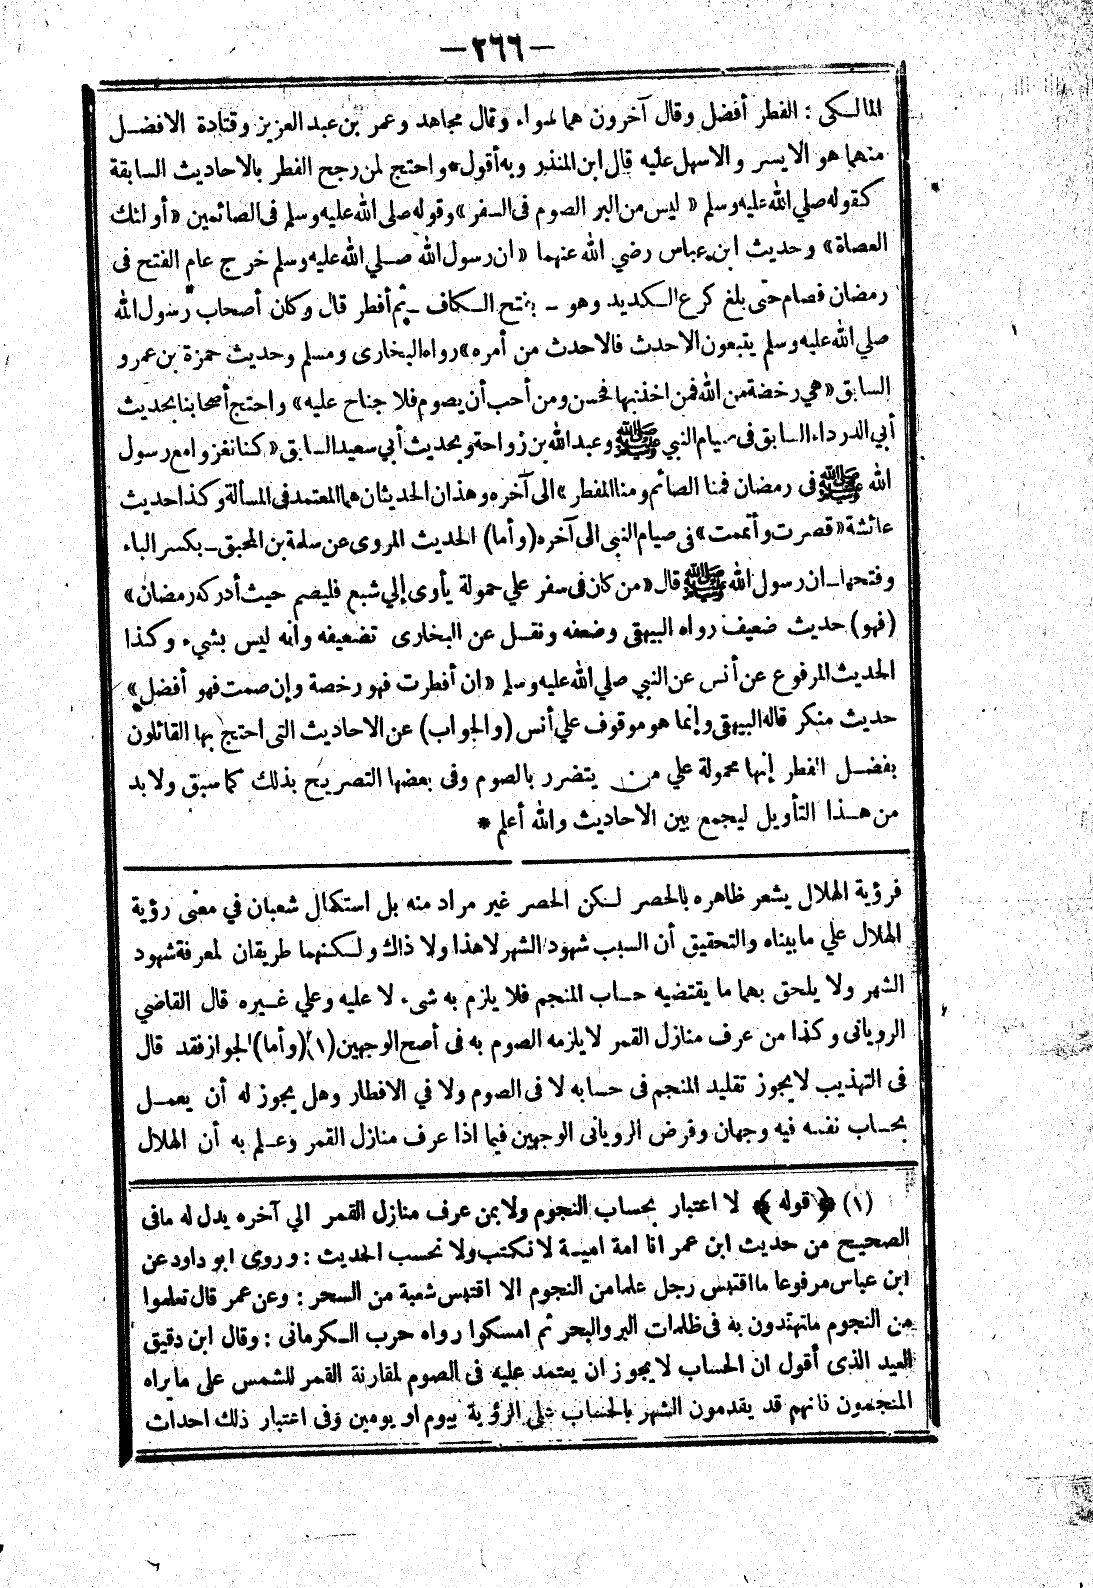 — ٢٦٦ —
المالـكى : الفطر أفضل وقال آخرون هما سواء وقال مجاهد وعمر بن عبد العزيز وقتادة الافضـل
منهما هو الايسر والاسهل عليه قال ابن المنذر وبه أقول * واحتج لمن رجح الفطر بالاحاديث السابقة
كقوله صلي الله عليه وسلم « ليس من البر الصوم فى السفر » وقوله صلى الله عليه وسلم فى الصائمين « أولئك
العصاة » وحديث ابن عباس رضي الله عنهما « ان رسول الله صـلي الله عليه وسلم خرج عام الفتح فى
رمضان فصام حتى بلغ كرع الـكديد وهو ـ بفتح الـكاف ـ ثم أفطر قال وكان أصحاب رسول الله
صلي الله عليه وسلم يتبعون الاحدث فالاحدث من أمره » رواه البخارى ومسلم وحديث حمزة بن عمرو
السابق « هي رخصة من الله فمن اخذ بها فحسن ومن أحب أن يصوم فلا جناح عليه » واحتج أصحابنا بحديث
أبي الدرداء السابق فى صيام النبي ﷺ وعبد الله بن رواحة وبحديث أبي سعيد السابق « كنا نغزوا مع رسول
الله ﷺ فى رمضان فمنا الصائم ومنا المفطر » الى آخره وهذان الحديثان هما المعتمد فى المسألة وكذا حديث
عائشة « قصرت وأتممت » فى صيام النبي الى آخره (وأما) الحديث المروى عن سلمة بن المحبق ـ بكسر الباء
وفتحها ـ ان رسول الله ﷺ قال « من كان فى سفر علي حمولة يأوى إلي شبع فليصم حيث أدركه رمضان »
(فهو) حديث ضعيف رواه البيهقى وضعفه ونقـل عن البخارى تضعيفه وانه ليس بشيء وكذا
الحديث المرفوع عن أنس عن النبي صلي الله عليه وسلم « ان أفطرت فهو رخصة وإن صمت فهو أفضل »
حديث منكر قاله البيهقى وإنما هو موقوف علي أنس (والجواب) عن الاحاديث التى احتج بها القائلون
بفضـل الفطر إنها محمولة علي مـن يتضرر بالصوم وفى بعضها التصريح بذلك كما سبق ولا بد
من هـذا التأويل ليجمع بين الاحاديث والله أعلم *
فرؤية الهلال يشعر ظاهره بالحصر لـكن الحصر غير مراد منه بل استكمال شعبان في معنى رؤية
الهلال علي ما بيناه والتحقيق أن السبب شهود الشهر لا هذا ولا ذاك ولـكنهما طريقان لمعرفة شهود
الشهر ولا يلحق بهما ما يقتضيه حـاب المنجم فلا يلزم به شىء لا عليه وعلي غـيره قال القاضي
الرويانى وكذا من عرف منازل القمر لا يلزمه الصوم به فى أصح الوجهين (١) (وأما) الجواز فقد قال
فى التهذيب لا يجوز تقليد المنجم فى حـابه لا فى الصوم ولا في الافطار وهل يجوز له أن يعمـل
بحـاب نفسه فيه وجهان وفرض الرويانى الوجهين فيما اذا عرف منازل القمر وعـلم به أن الهلال
(١) ﴿ قوله ﴾ لا اعتبار بحساب النجوم ولا بمن عرف منازل القمر الي آخره يدل له ما فى
الصحيح من حديث ابن عمر انا امة اميـة لا نكتب ولا نحسب الحديث : وروى ابو داود عن
ابن عباس مرفوعا ما اقتبس رجل علما من النجوم الا اقتبس شعبة من السحر : وعن عمر قال تعلموا
من النجوم ما تهتدون به فى ظلمات البر والبحر ثم امسكوا رواه حرب الـكرمانى : وقال ابن دقيق
العيد الذى أقول ان الحساب لا يجوز ان يعتمد عليه فى الصوم لمقارنة القمر للشمس على ما يراه
المنجمون فانهم قد يقدمون الشهر بالحساب على الرؤية بيوم او يومين وفى اعتبار ذلك احداث